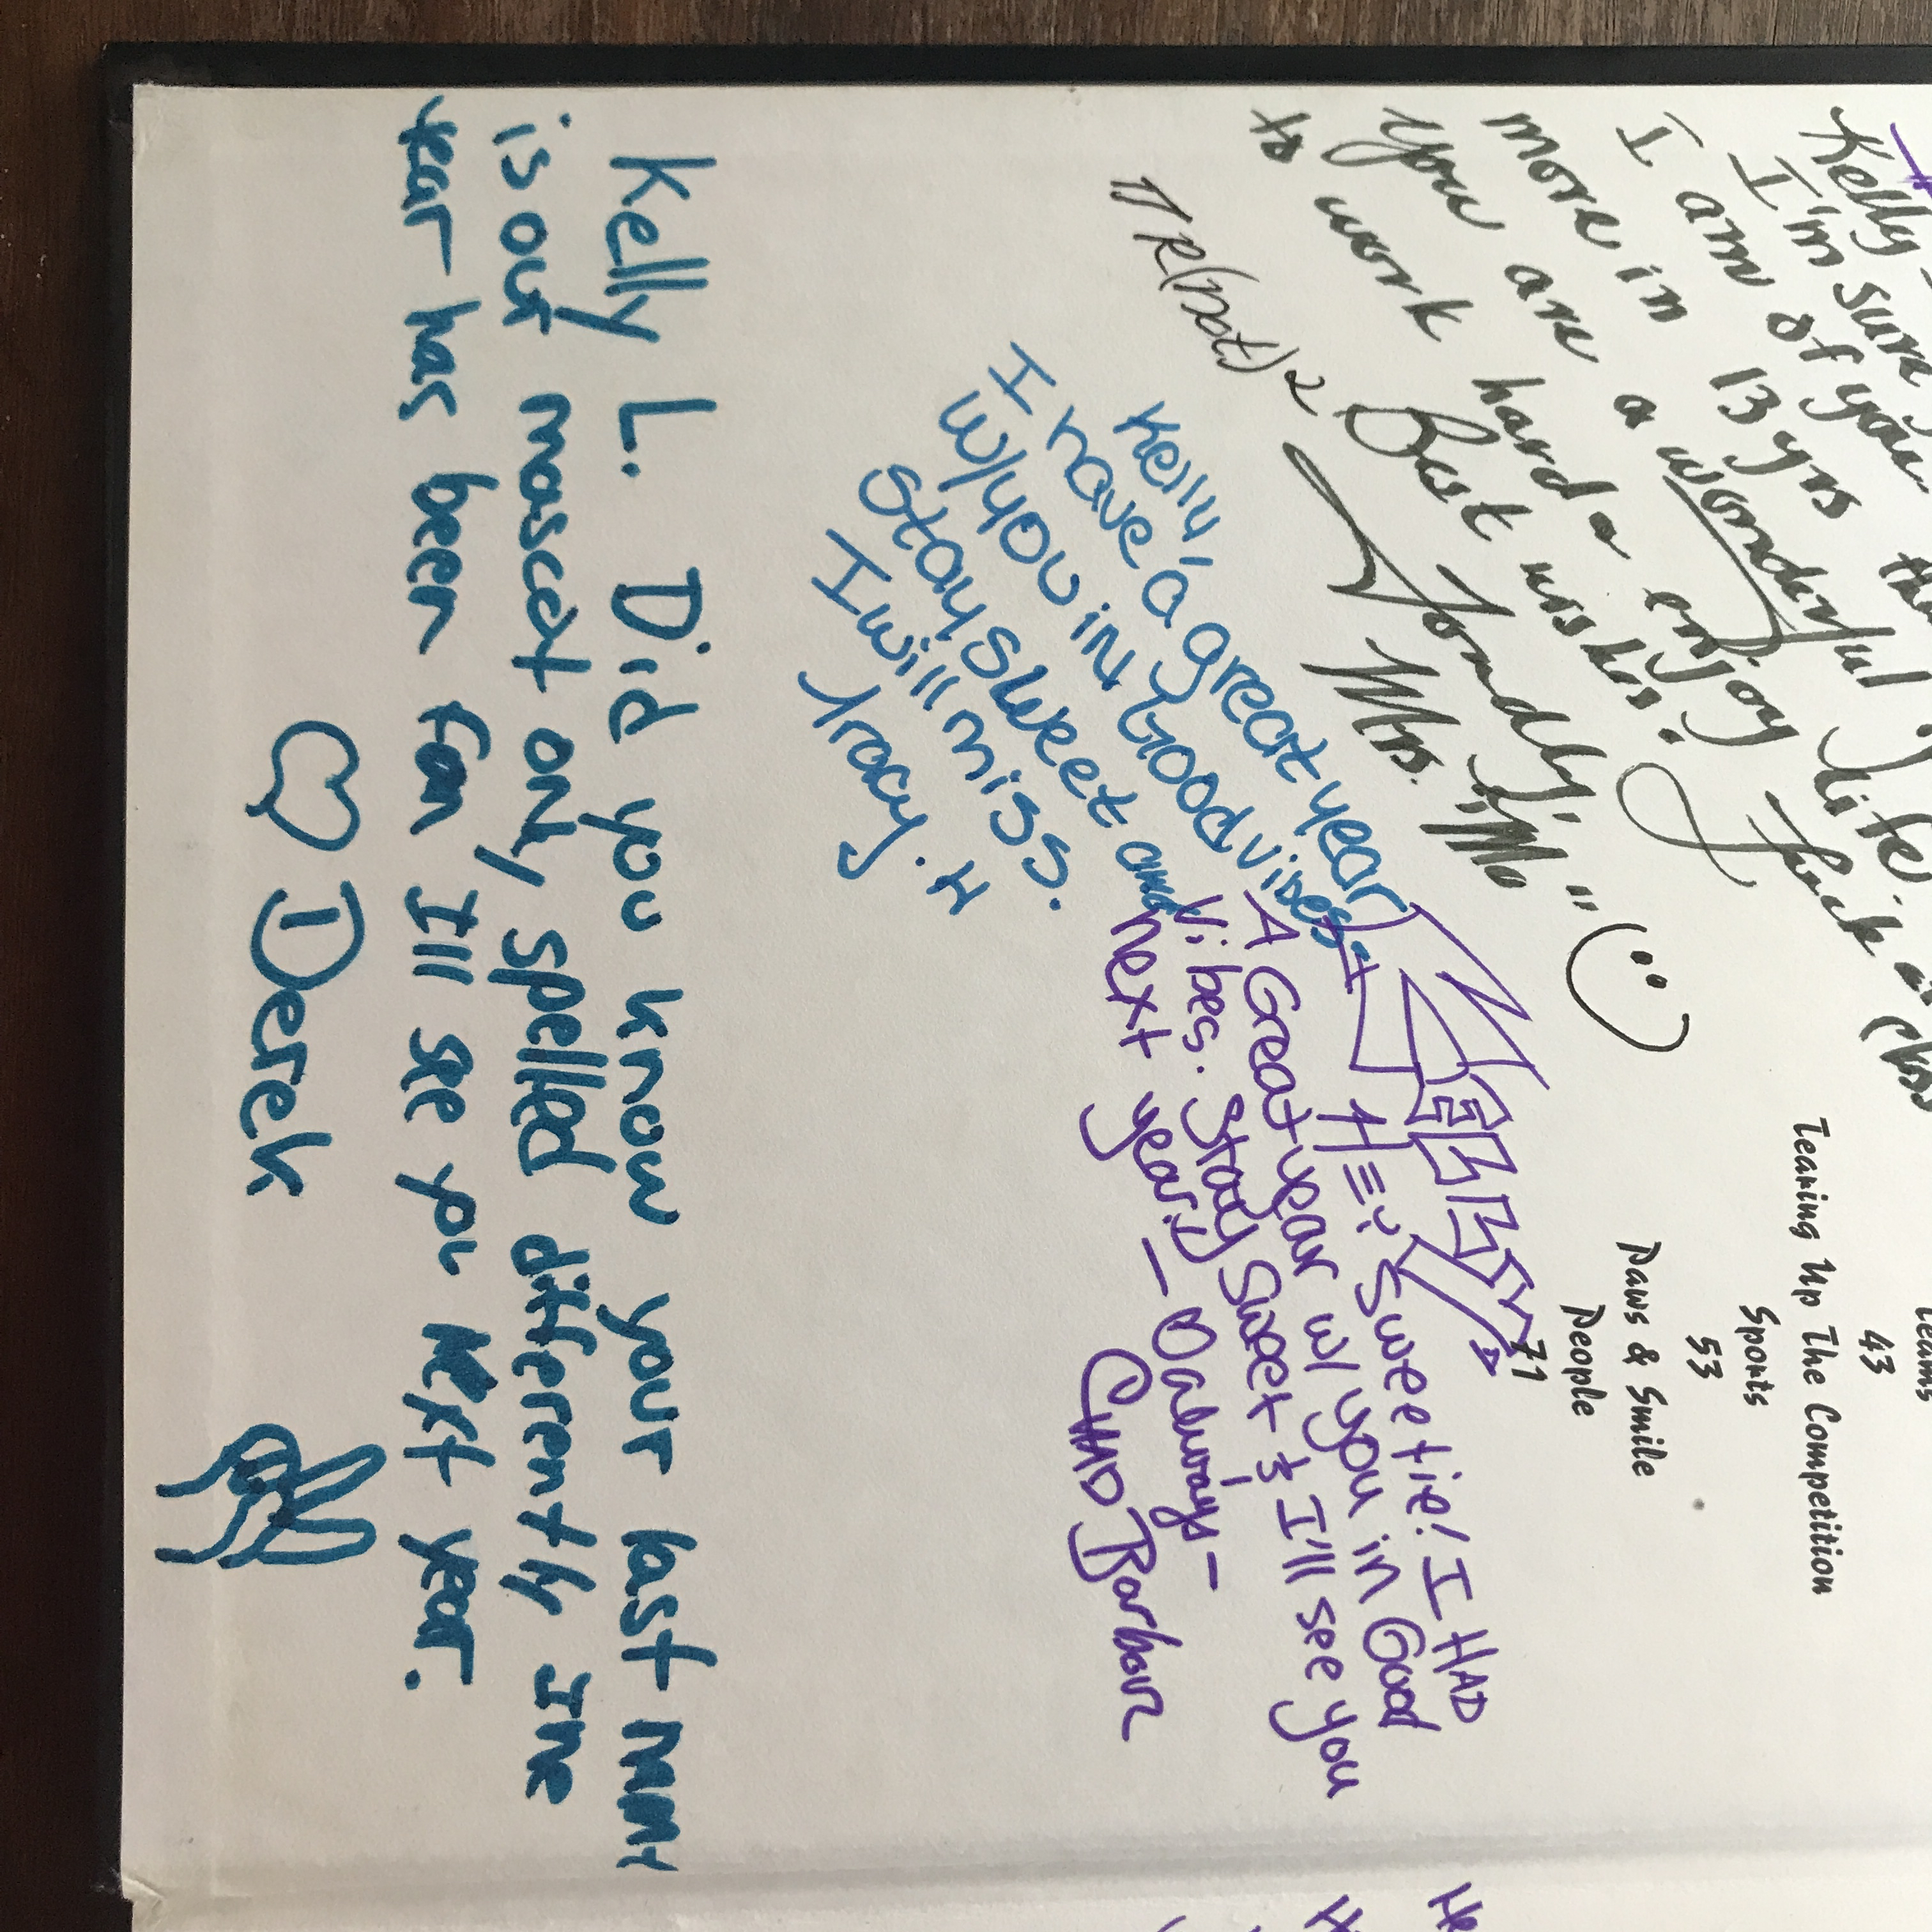 Kelly -
I'm sure
I am of you
more in 13 yrs
You are a wonderful
to work hard & enjoy life.
Best wishes.
Fondly,
Mrs. "Mo"
πR(not)2
Teams
43
Tearing Up The Competition
Sports
53
Paws & Smile
People
71
Kelly,
I have a great year
w/you in Good vibes.
Stay sweet and
I will miss.
Tracy. H
Sweetie! I HAD
A Great year w/ you in Good
Vibes. Stay Sweet & I'll see you
next year!
always-
CHAD Barbour
Kelly L. Did you know your last name
is our mascot only spelled differently The
year has been fun Ill see you Next year.
Derek